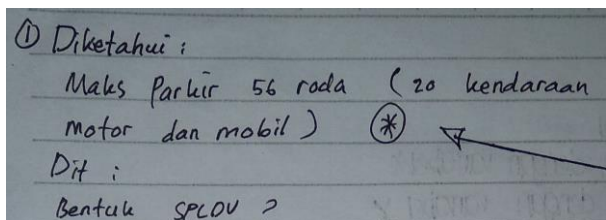 ① Diketahui :
Maks Parkir 56 roda ( 20 kendaraan
motor dan mobil ) *
Dit :
Bentuk SPLDV ?